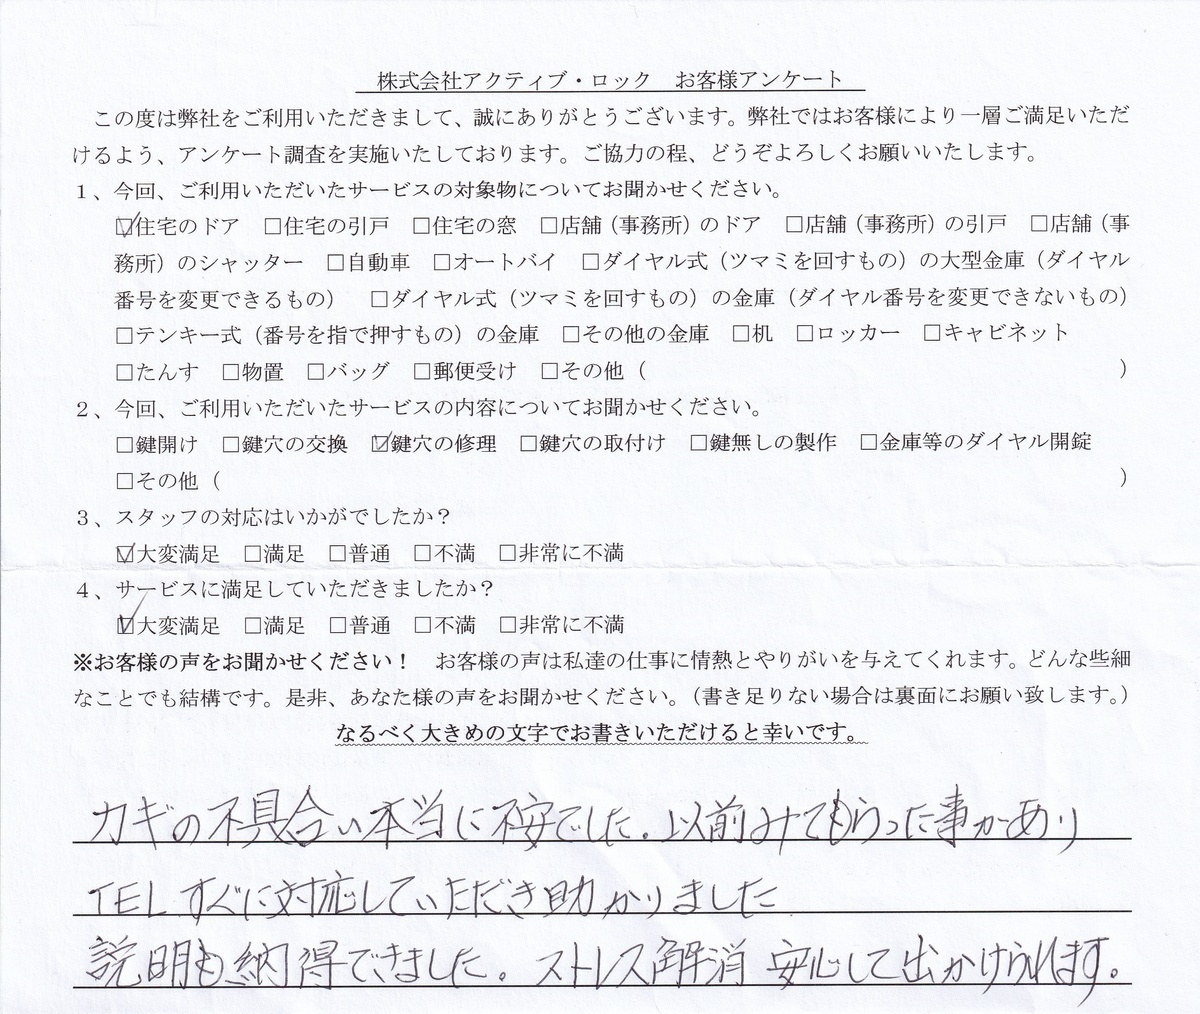 株式会社アクティブ・ロック　お客様アンケート
この度は弊社をご利用いただきまして、誠にありがとうございます。弊社ではお客様により一層ご満足いただ
けるよう、アンケート調査を実施いたしております。ご協力の程、どうぞよろしくお願いいたします。
１、今回、ご利用いただいたサービスの対象物についてお聞かせください。
☑住宅のドア　□住宅の引戸　□住宅の窓　□店舗（事務所）のドア　□店舗（事務所）の引戸　□店舗（事
務所）のシャッター　□自動車　□オートバイ　□ダイヤル式（ツマミを回すもの）の大型金庫（ダイヤル
番号を変更できるもの）　□ダイヤル式（ツマミを回すもの）の金庫（ダイヤル番号を変更できないもの）
□テンキー式（番号を指で押すもの）の金庫　□その他の金庫　□机　□ロッカー　□キャビネット
□たんす　□物置　□バッグ　□郵便受け　□その他（　　　）
２、今回、ご利用いただいたサービスの内容についてお聞かせください。
□鍵開け　□鍵穴の交換　☑鍵穴の修理　□鍵穴の取付け　□鍵無しの製作　□金庫等のダイヤル開錠
□その他（　　　）
３、スタッフの対応はいかがでしたか？
☑大変満足　□満足　□普通　□不満　□非常に不満
４、サービスに満足していただきましたか？
☑大変満足　□満足　□普通　□不満　□非常に不満
※お客様の声をお聞かせください！　お客様の声は私達の仕事に情熱とやりがいを与えてくれます。どんな些細
なことでも結構です。是非、あなた様の声をお聞かせください。（書き足りない場合は裏面にお願い致します。）
なるべく大きめの文字でお書きいただけると幸いです。
カギの不具合い本当に不安でした。以前みてもらった事があり
TELすぐに対応していただき助かりました
説明も納得できました。ストレス解消 安心して出かけられます。